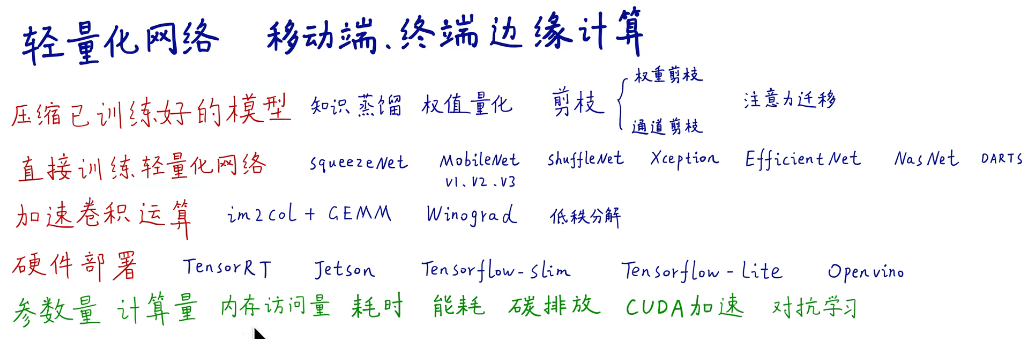 轻量化网络 移动端、终端边缘计算
压缩已训练好的模型 知识蒸馏 权值量化 剪枝 权重剪枝 通道剪枝 注意力迁移
直接训练轻量化网络 squeezeNet MobileNet V1、V2、V3 shuffleNet Xception EfficientNet NasNet DARTS
加速卷积运算 im2col + GEMM Winograd 低秩分解
硬件部署 TensorRT Jetson Tensorflow-slim Tensorflow-Lite Openvino
参数量 计算量 内存访问量 耗时 能耗 碳排放 CUDA加速 对抗学习